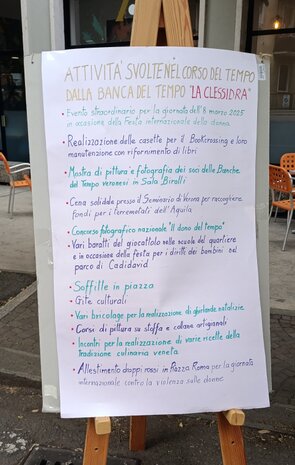 ATTIVITA' SVOLTE NEL CORSO DEL TEMPO
DALLA BANCA DEL TEMPO "LA CLESSIDRA"
• Evento straordinario per la giornata dell'8 marzo 2025
in occasione della Festa internazionale della donna
• Realizzazione delle casette per il Bookcrossing e loro
manutenzione con rifornimento di libri
• Mostra di pittura e fotografia dei soci delle Banche
del Tempo veronesi in Sala Birolli
• Cena solidale presso il Seminario di Verona per raccogliere
fondi per i terremotati dell'Aquila
• Concorso fotografico nazionale "Il dono del tempo"
• Vari baratti del giocattolo nelle scuole del quartiere
e in occasione della festa per i diritti dei bambini nel
parco di Cadidavid
• Soffitte in piazza
• Gite culturali
• Vari bricolage per la realizzazione di ghirlande natalizie
• Corsi di pittura su stoffa e collane artigianali
• Incontri per la realizzazione di varie ricette della
tradizione culinaria veneta
• Allestimento drappi rossi in Piazza Roma per la giornata
internazionale contro la violenza sulle donne